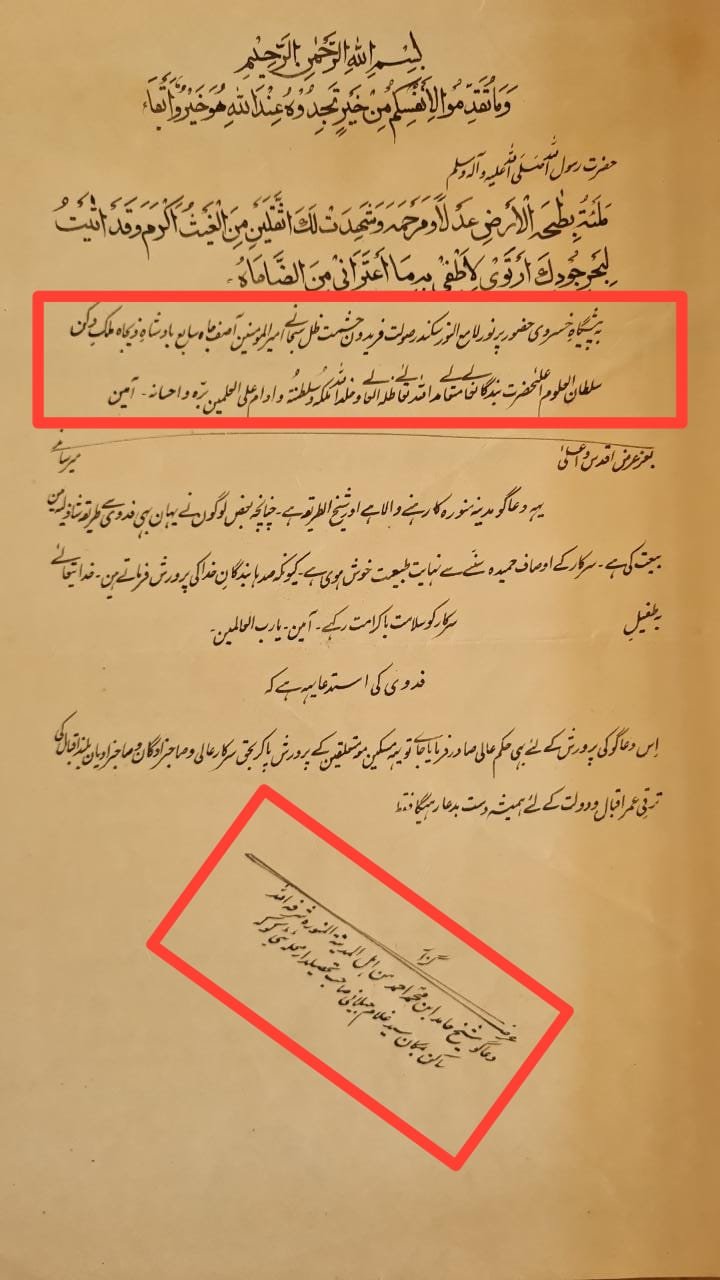 بِسْمِ اللهِ الرَّحْمٰنِ الرَّحِيْمِ
وَمَا تُقَدِّمُوا لِأَنْفُسِكُمْ مِنْ خَيْرٍ تَجِدُوْهُ عِنْدَ اللهِ هُوَ خَيْرٌ وَّأَبْقَاءَ
حضرت رسول اللہ صلی اللہ علیہ وآلہ وسلم
الْأَرْضِ عَدْلًا وَّمَرْحَمَةً وَشَهِدَتْ لَكَ الثَّقَلَيْنِ مِنَ الْغَيْثُ أَكْرَمُ وَقَدْ أَتَيْتُ
لِبَحْرِ جُوْدِكَ أَرْتَوِيْ بِهِ مَا أَعْتَرَانِيْ مِنَ
بہ پیشگاہ خسروی حضور پر نور لامع النور سکندر صولت فریدون حشمت ظل سبحانی امیر المومنین آصف جاہ سابع بادشاہ ذیجاہ ملک دکن
سلطان العلوم اعلیٰحضرت بندگانعالی متعالی مد اللہ تعالیٰ ظلہ العالی وخلد اللہ ملکہ وسلطنتہ وادام علی العلمین برّہ واحسانہ ۔ آمین
بعز عرض اقدس واعلیٰ میرساند
یہہ دعاگو مدینہ منورہ کا رہنے والا ہے اور شیخ الطریقہ ہے۔ چنانچہ بعض لوگوں نے یہاں بہی فدوی سے طریقہ شاذلیہ میں
بیعت کی ہے۔ سرکار کے اوصاف حمیدہ سننے سے نہایت طبیعت خوش ہوی ہے۔ کیونکہ صدہا بندگان خدا کی پرورش فرماتے ہین۔ خدا تیعالیٰ
بہ طفیل سرکار کو سلامت باکرامت رکہے۔ آمین۔ یارب العالمین۔
فدوی کی استدعا یہہ ہے کہ
اِس دعاگو کی پرورش کے لئے بہی حکم عالی صادر فرمایا جاے تو یہہ مسکین مو متعلقین کے پرورش پاکر بحق سرکار عالی وصاحبزادگان وصاحبزادیان بلند اقبال کی
ترقی عمر اقبال ودولت کے لئے ہمیشہ دست بدعا رہیگا فقط
عرضے
دعاگو شیخ حامد ابن محمد احمد من اہل المدینۃ المنورہ شرفہ اللہ
ساکن بمکان سید غلام جیلانی صاحب تحصیلدار